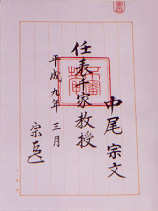 中尾宗文
任表千家教授
平成九年三月
宗